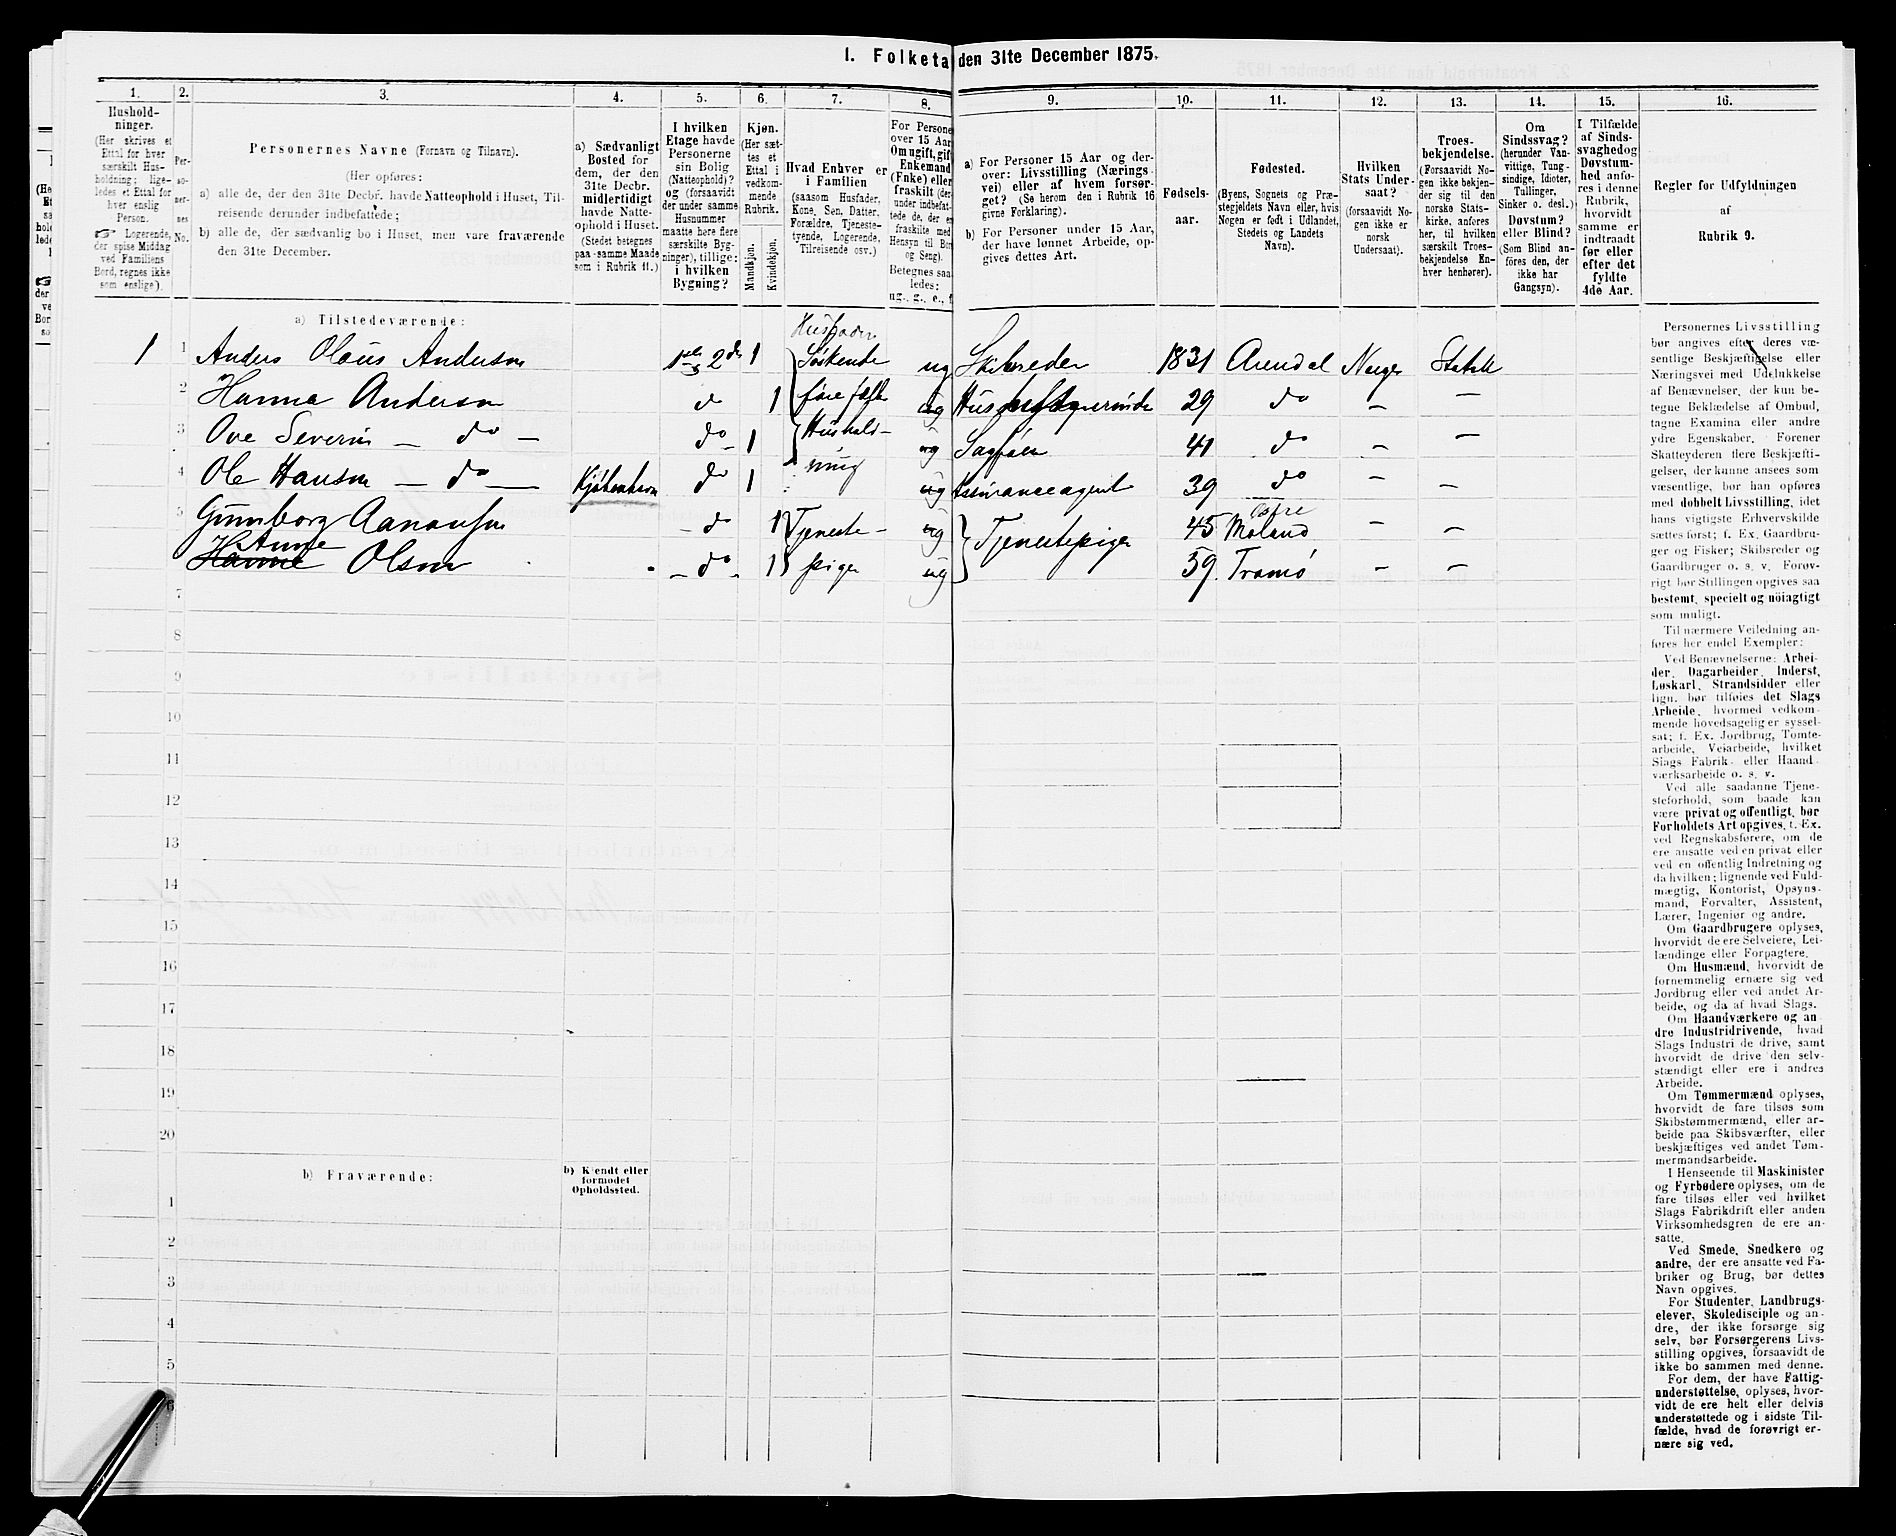 1. Folketa den 31te December 1875.
1. 2. 3. 4. 5. 6. 7. 8. 9. 10. 11. 12. 13. 14. 15. 16.
Hushold-
ninger.
(Her skrives et
Ettal for hver
særskilt Hus-
holdning; lige-
ledes et Ettal for
hver enslig
Person.
Logerende,
der spise Middag
ved Familiens
Bord, regnes ikke
som enslige).
Per-
so-
ner-
nes
No.
Personernes Navne (Fornavn og Tilnavn).
(Her opføres:
a) alle de, der den 31te Decbr. havde Natteophold i Huset, Til-
reisende derunder indbefattede;
b) alle de, der sædvanlig bo i Huset, men vare fraværende
den 31te December.
a) Sædvanligt
Bosted for
dem, der den
31te Decbr.
midlertidigt
havde Natte-
ophold i Huset.
(Stedet betegnes
paa samme Maade
som i Rubrik 11.)
I hvilken
Etage havde
Personerne
sin Bolig
(Natteophold)?
og (forsaavidt
der under samme
Husnummer
maatte høre flere
særskilte Byg-
ninger), tillige:
i hvilken
Bygning?
Kjøn.
(Her sæt-
tes et
Ettal i
vedkom-
mende
Rubrik.
Mandkjøn.
Kvindekjøn.
Hvad Enhver er
i Familien
(saasom Husfader,
Kone, Søn, Datter,
Forældre, Tjeneste-
tyende, Logerende,
Tilreisende osv.)
For Persone
over 15 Aar
Om ugift, gif
Enkemand
(Enke) eller
fraskilt (der
under indbefat-
tede de, der er
fraskilte med
Hensyn til Bor
og Seng).
Betegnes saa
ledes:
ug., g., e., f
a) For Personer 15 Aar og der-
over: Livsstilling (Nærings-
vei) eller af hvem forsør-
get? (Se herom den i Rubrik 16
givne Forklaring).
b) For Personer under 15 Aar,
der have lønnet Arbeide, op-
gives dettes Art.
Fødsels-
aar.
Fødested.
(Byens, Sognets og Præ-
stegjeldets Navn eller, hvis
Nogen er født i Udlandet,
Stedets og Landets
Navn).
Hvilken
Stats Under-
saat?
(forsaavidt No-
gen ikke er
norsk
Undersaat).
Troes-
bekjendelse.
(Forsaavidt No-
gen ikke bekjen-
der sig til den
norske Stats-
kirke, anføres
her, til hvilken
særskilt Troes-
bekjendelse En-
hver henhører).
Om
Sindssvag?
(herunder Van-
vittige, Tung-
sindige, Idioter,
Tullinger,
Sinker o. desl.)
Døvstum?
eller Blind?
(Som Blind an-
føres den, der
ikke har
Gangsyn).
I Tilfælde
af Sinds-
svaghed og
Døvstum-
hed anfø-
res i denne
Rubrik,
hvorvidt
samme er
indtraadt
før eller
efter det
fyldte
4de Aar.
Regler for Udfyldningen
af
Rubrik 9.
a) Tilstedeværende:
Husfader
1 1 Anders Olaus Andersen 1ste & 2den 1 Søskende ug Skibsreder 1831 Arendal Norge Statsk
2 Hanna Andersen do 1 ug 29 do — —
3 Ove Severin — do — do 1 Hushold- ug Sagfører 41 do — —
4 Ole Hansen — do — Kjøbenhavn do 1 ning ug Assuranceagent 39 do
5 Gunborg Aanonsen — do 1 Tjeneste- ug Tjenestepiger 45 Østre Moland — —
Anne
Hanne Olsen — do — 1 piger ug 59 Tromø — —
7
8
9
10
11
12
13
14
15
16
17
18
19
20
b) Fraværende:
b) Kjendt eller
formodet
Opholdssted.
1
2
3
4
5
6
Personernes Livsstilling
bør angives efter deres væ-
sentlige Beskjæftigelse eller
Næringsvei med Udelukkelse
af Benævnelser, der kun be-
tegne Beklædelse af Ombud,
tagne Examina eller andre
ydre Egenskaber. Forener
Skatteyderen flere Beskjæfti-
gelser, der kunne ansees som
væsentlige, bør han opføres
med dobbelt Livsstilling, idet
hans vigtigste Erhvervskilde
sættes først; f. Ex. Gaardbru-
ger og Fisker; Skibsreder og
Gaardbruger o. s. v. Forøv-
rigt bør Stillingen opgives saa
bestemt, specielt og nöiagtigt
som muligt.
Til nærmere Veiledning an-
føres her endel Exempler:
Ved Benævnelserne: Arbei-
der, Dagarbeider, Inderst,
Løskarl, Strandsidder eller
lign. bør tilføies det Slags
Arbeide, hvormed vedkom-
mende hovedsagelig er syssel-
sat; f. Ex. Jordbrug, Tomte-
arbeide, Veiarbeide, hvilket
Slags Fabrik- eller Haand
værksarbeide o. s. v.
Ved alle saadanne Tjene-
steforhold, som baade kan
være privat og offentligt, bør
Forholdets Art opgives, f. Ex.
ved Regnskabsførere, om de
ere ansatte ved en privat eller
ved en offentlig Indretning og
da hvilken; lignende ved Fuld-
mægtig, Kontorist, Opsyns-
mand, Forvalter, Assistent,
Lærer, Ingeniør og andre.
Om Gaardbrugere oplyses,
hvorvidt de ere Selveiere, Lei-
lændinge eller Forpagtere.
Om Husmænd, hvorvidt de
fornemmelig ernære sig ved
Jordbrug eller ved andet Ar-
beide, og da af hvad Slags.
Om Haandværkere og an
dre Industridrivende, hvad
Slags Industri de drive, samt
hvorvidt de drive den selv-
stændigt eller ere i andres
Arbeide.
Om Tømmermænd oplyses,
hvorvidt de fare tilsøs som
Skibstømmermænd, eller ar-
beide paa Skibsværfter, eller
beskjæftiges ved andet Tøm-
mermandsarbeide.
I Henseende til Maskinister
og Fyrbødere oplyses, om de
fare tilsøs eller ved hvilket
Slags Fabrikdrift eller anden
Virksomhedsgren de ere an-
satte.
Ved Smede, Snedkere og
andre, der ere ansatte ved Fa-
briker og Brug, bør dettes
Navn opgives.
For Studenter, Landbrugs-
elever, Skoledisciple og an-
dre, der ikke forsørge sig
selv, bør Forsørgerens Livs-
stilling opgives, forsaavidt de
ikke bo sammen med denne.
For dem, der have Fattig-
understøttelse, oplyses, hvor-
vidt de ere helt eller delvis
understøttede og i sidste Til-
fælde, hvad de forøvrigt er-
nære sig ved.